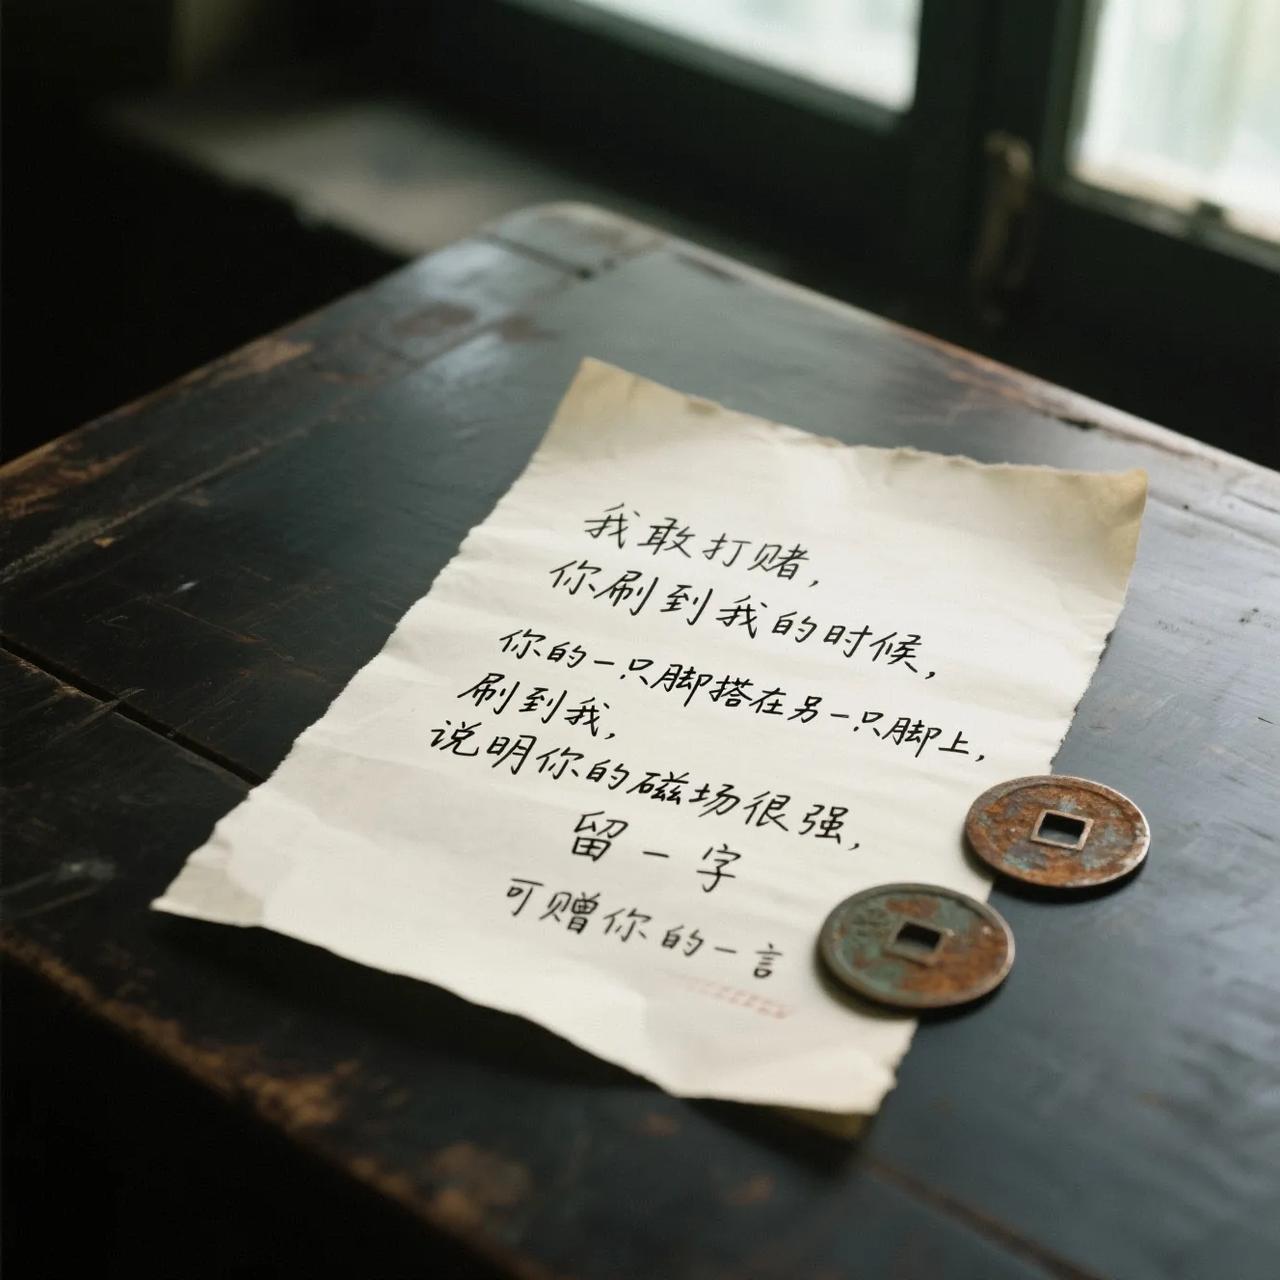 我敢打赌，
你刷到我的时候，
你的一只脚搭在另一只脚上，
刷到我，
说明你的磁场很强，
留一字
可赠你的一言